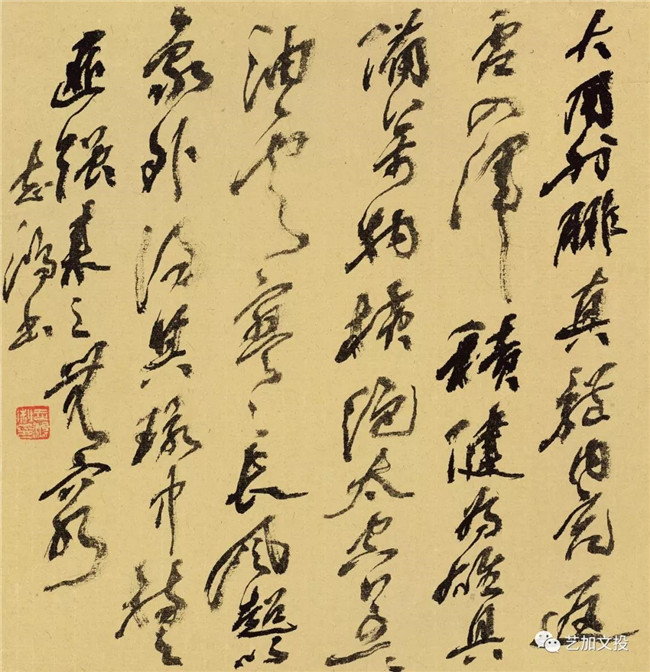 大用外腓真體內充返
虛入渾積健為雄具
備萬物橫絕太空荒〻
油雲寥〻長風超以
象外得其環中持之
匪強來之無窮
志鴻書
艺加文投